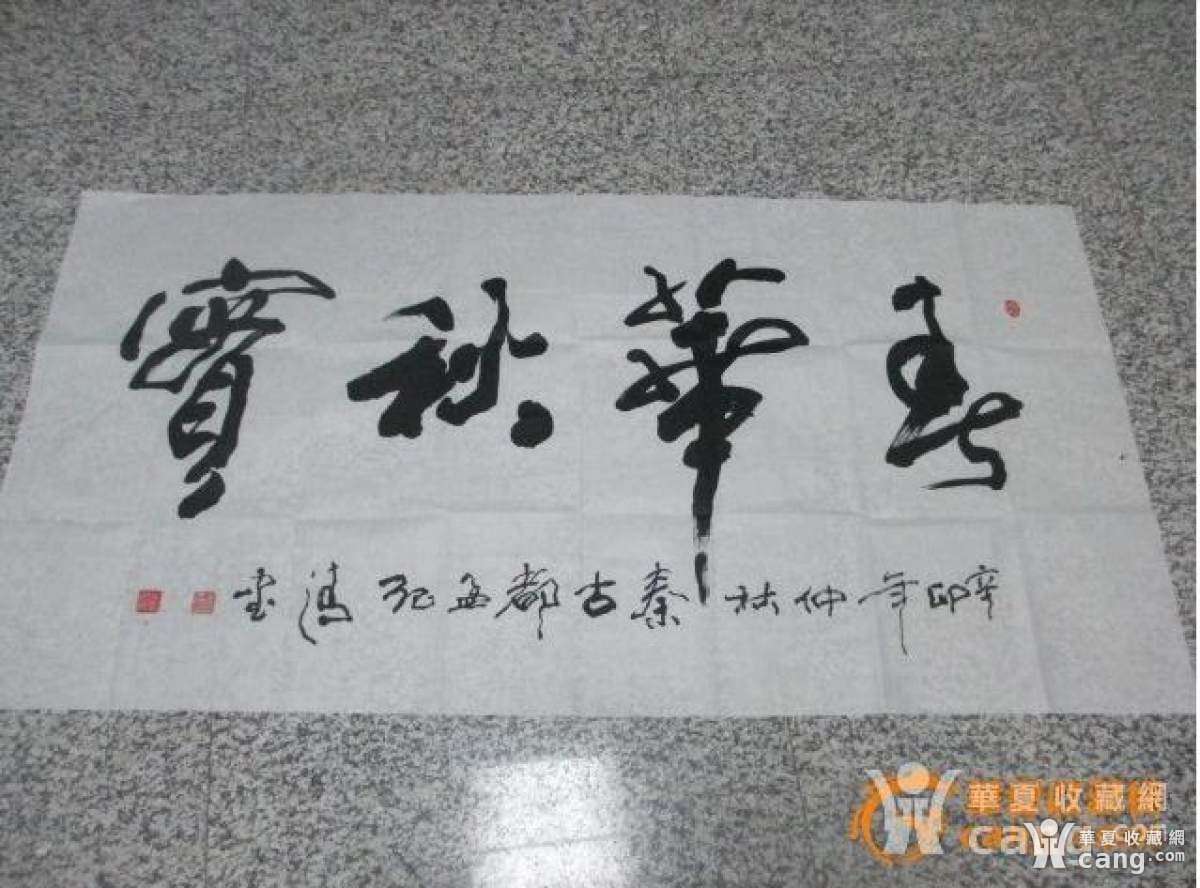 春華秋實
辛卯年仲秋秦古都孟紀鴻書
華夏收藏網
cang.com
華夏收藏網
cang.com